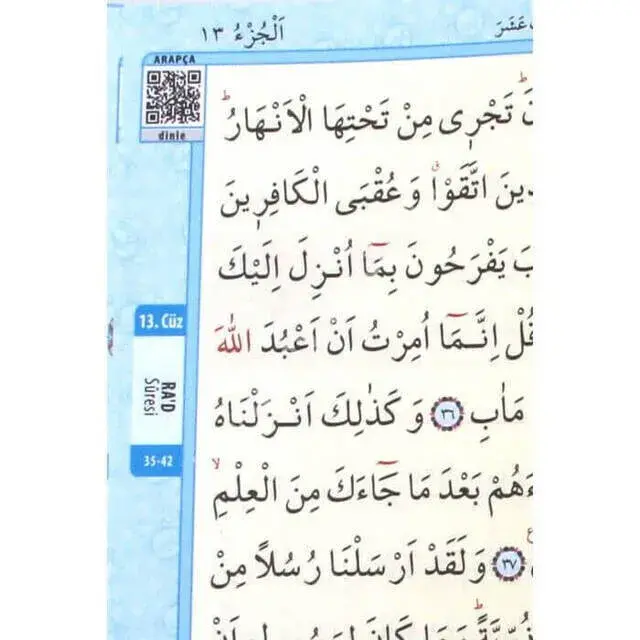 اَلْجُزْءُ ١٣
عَشَرَ
ARAPÇA
dinle
تَجْرٖى مِنْ تَحْتِهَا الْاَنْهَارُ
اتَّقَوْا وَعُقْبَى الْكَافِرٖينَ
يَفْرَحُونَ بِمَٓا اُنْزِلَ اِلَيْكَ
قُلْ اِنَّـمَٓا اُمِرْتُ اَنْ اَعْبُدَ اللّٰهَ
مَاٰبِ ٣٦ وَكَذٰلِكَ اَنْـزَلْنَاهُ
بَعْدَ مَا جَٓاءَكَ مِنَ الْعِلْمِ
٣٧ وَلَقَدْ اَرْسَلْنَا رُسُلًا مِنْ
وَمَا كَانَ لِرَسُولٍ اَنْ
13. Cüz
RA'D
Sûresi
35-42